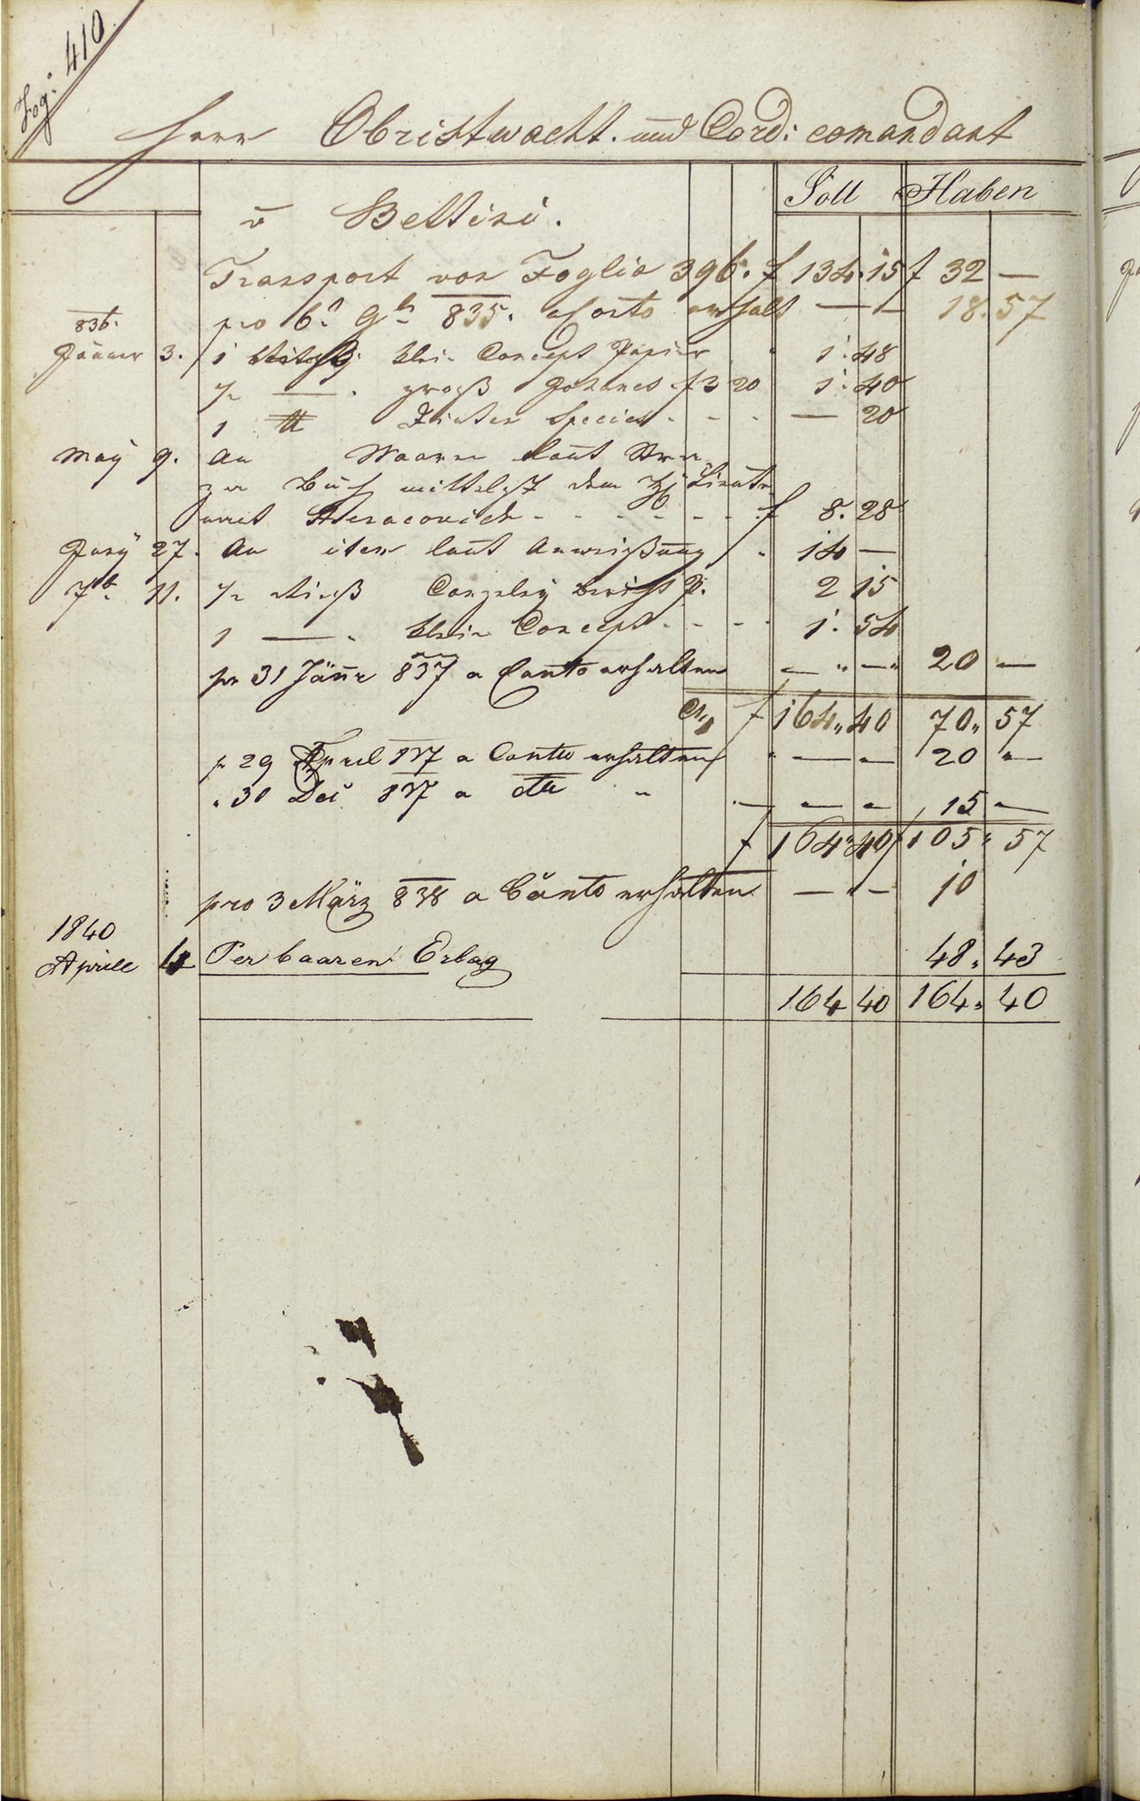 Fog: 410
Herr Obristwacht. und Cord: comandant
Soll Haben
v Bettini.
Transport von Foglio 396. f 134. 15 f 32 —
pro 6 9b 835. a Conto erhalt — — 18. 57
836.
Jänner 3. 1 klein Concept Papier " 1. 48
½ — . groß f 3 20 1. 40
1 ℔ Tinten Species - - - — 20
May 9. An Waaren laut
zu Buch mittelst dem
f 8. 28
Juny 27. An iten laut Anweißung " 14 —
7b 11. ½ Rieß Canzeley P. 2 15
1 — . klein Concept - - - - 1. 54
pr 31 Jänr 837 a Conto erhalten — " — " 20 —
f 164 " 40 70 " 57
pr 29 April 837 a Conto erhalten " — — 20 " —
" 30 Dei 837 a dto " — — 15 —
f 164 " 40 f 105 " 57
pro 3 März 838 a Conto erhalten — " — 10
1840
Aprile 4 Per baaren Erlag 48 " 43
164 40 164 " 40